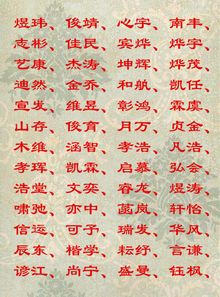 煜玮、俊靖、心宇、南丰、
志彬、佳民、宾烨、烨宇、
艺康、杰涛、坤辉、烨茂、
迪然、金乔、和航、凯任、
宣发、维昱、彰鸿、霖虞、
山存、俊育、月万、贞金、
木维、涵智、孝浩、凡浩、
孝珲、凯霖、启慕、弘会、
浩堂、文奕、睿龙、煜涛、
啸弛、亦中、菡岚、轩怡、
信运、可子、瑞发、华风、
辰东、楷学、耘纾、言谦、
谚江、尚宁、盛曼、钰枫、